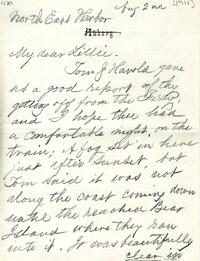 1130.
Aug 2nd
[1911]
North East Harbor
My dear Lillie.
Tom & Harold gave
us a good report of the
getting off from the Ferry
and I hope they had
a comfortable night, on the
train; A fog set in here
just after Sunset, but
Tom said it was not
along the coast coming down
until they reached Bear
Island where they ran
into it. It was beautifully
clear in